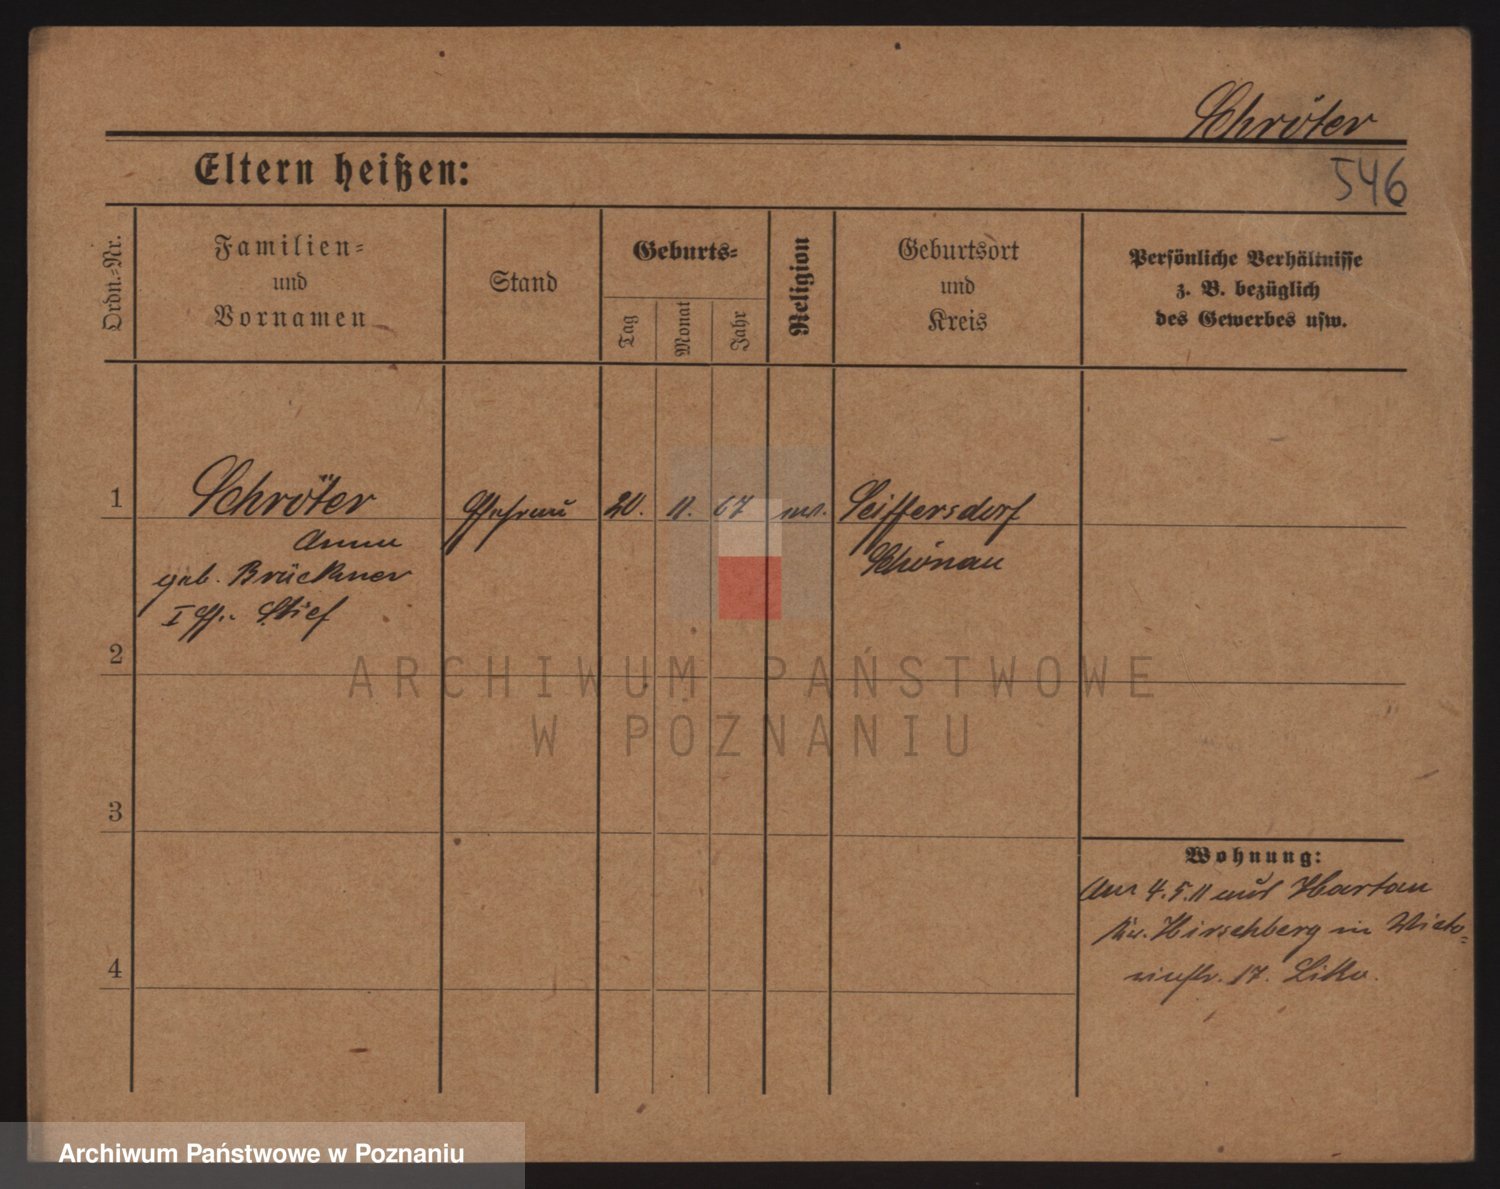 Schröter
546
Eltern heißen:
Ordn.-Nr.
Familien-
und
Vornamen
Stand
Geburts-
Tag
Monat
Jahr
Religion
Geburtsort
und
Kreis
Persönliche Verhältnisse
z. B. bezüglich
des Gewerbes usw.
1
Schröter
Ehefrau
20.
11.
67
ev.
Seiffersdorf
Anna
Schönau
geb. Brückner
I
2
ARCHIWUM PAŃSTWOWE
W POZNANIU
3
Wohnung:
Am 4.5.11 aus Hartau
Kr. Hirschberg in
17.
4
Archiwum Państwowe w Poznaniu